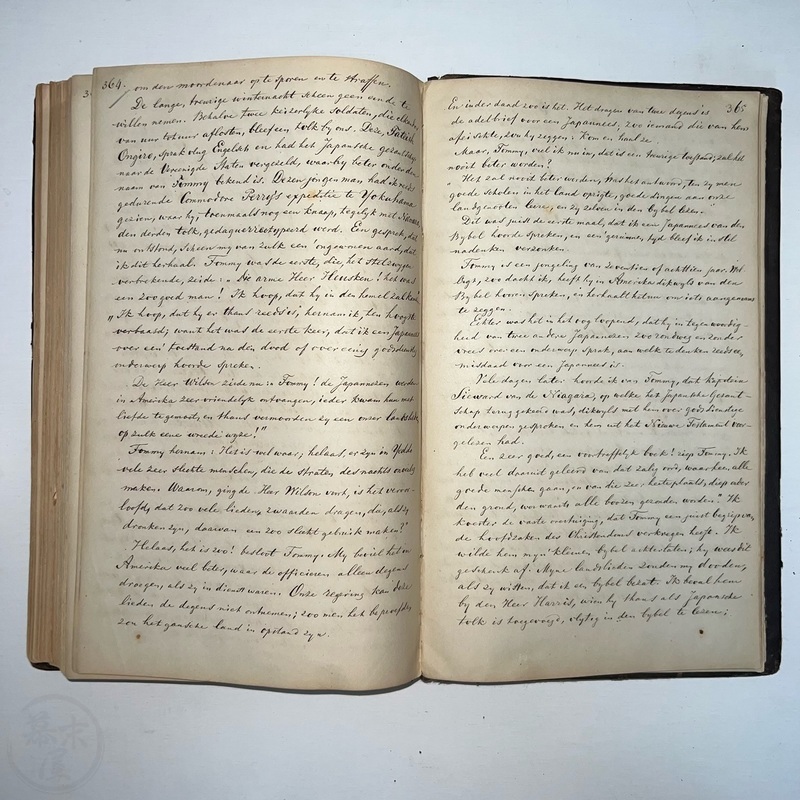 364.
om den moordenaar op te sporen en te straffen.
De lange, treurige winternacht scheen geen einde te
willen nemen. Behalve twee keizerlyke soldaten, die elkander
van uur tot uur aflosten, bleef een tolk by ons. Deze,
Ongiro, sprak vlug Engelsch en had het Japansche gezantschap
naar de Vereenigde Staten vergezeld, waar hy beter onder den
naam van Tommy bekend is. Dezen jongen man had ik reeds
gedurende Commodore Perry's expeditie te Yokuhama
gezien, waar hy, toenmaals nog een knaap, tegelyk met
den derden tolk, gedaguerreotypeerd werd. Een gesprek, dat
nu ontstond, scheen my van zulk een ongewonen aard, dat
ik dit herhaal. Tommy was de eerste, die, het stilzwygen
verbrekende, zeide: „De arme Heer Heusken! het was
een zoo goed man! Ik hoop, dat hy in den hemel zal
„Ik hoop, dat hy er thans reeds is, hernam ik, ten hoogste
verbaasd; want het was de eerste keer, dat ik een Japannees
over een toestand na den dood of over eenig godsdienstig
onderwerp hoorde spreken.
De Heer Wilson zeide nu: Tommy! de Japannezen werden
in Amerika zeer vriendelyk ontvangen, ieder kwam hun met
liefde te gemoet, en thans vermoorden zy een onzer landslieden
op zulk eene wreede wyze!"
Tommy hernam: Het is wel waar; helaas, er zyn in Yeddo
vele zeer slechte menschen, die de straten des nachts onveilig
maken. Waarom, ging de Heer Wilson voort, is het veroor-
loofd, dat zoo vele lieden, zwaarden dragen, die, als zy
dronken zyn, daarvan een zoo slecht gebruik maken?"
Helaas, het is zoo! besloot Tommy. My beviel het in
Amerika veel beter, waar de officieren alleen degens
dragen, als zy in dienst waren. Onze regering kan dezen
lieden de degens niet ontnemen; zoo men het beproefde,
zou het gansche land in opstand zyn.
365
En inderdaad zoo is het. Het dragen van twee degens is
de adelbrief voor een Japannees, zoo iemand die van hem
afeischte, zou hy zeggen: Kom en haal ze.
Maar, Tommy, viel ik nu in, dat is een treurige toestand; zal het
nooit beter worden?
Het zal nooit beter worden, was het antwoord, ten zy men
goede scholen in het land oprigte, goede dingen aan onze
landgenooten leere, en zy zelven in den bybel lezen."
Dit was juist de eerste maal, dat ik een Japannees van den
Bybel hoorde spreken, en een geruimen tyd bleef ik in stil
nadenken verzonken.
Tommy is een jongeling van zeventien of achttien jaar.
zoo dacht ik, heeft hy in Amerika dikwyls van den
Bybel hooren spreken, en herhaalt het nu om iets aangenaams
te zeggen.
Echter was het in het oog loopend, dat hy in tegenwoordig-
heid van twee andere Japannezen zoo rondweg en zonder
vrees over een onderwerp sprak, aan welk te denken reeds een
misdaad voor een Japannees is.
Vele dagen later hoorde ik van Tommy, dat kapitein
van de Niagara, op welke het Japansche Gezant-
schap terug gekomen was, dikwyls met hem over godsdienstige
onderwerpen gesproken en hem uit het Nieuwe Testament voor-
gelezen had.
Een zeer goed, een voortreffelyk boek! riep Tommy. Ik
heb veel daaruit geleerd van dat zalig oord, waarheen alle
goede menschen gaan, en van die zeer heete plaats, diep onder
den grond, waarvoor alle boozen gezonden worden." Ik
koester de vaste overtuiging, dat Tommy een juist begrip van
de hoofdzaken des Christendoms verkregen heeft. Ik
wilde hem myn kleinen bybel achterlaten; hy wees dit
geschenk af. Myne landslieden zouden my dooden,
als zy wisten, dat ik een bybel bezat. Ik beval hem
by den Heer Harris, wien hy thans als Japansche
tolk is toegevoegd, vlytig in den bybel te lezen;